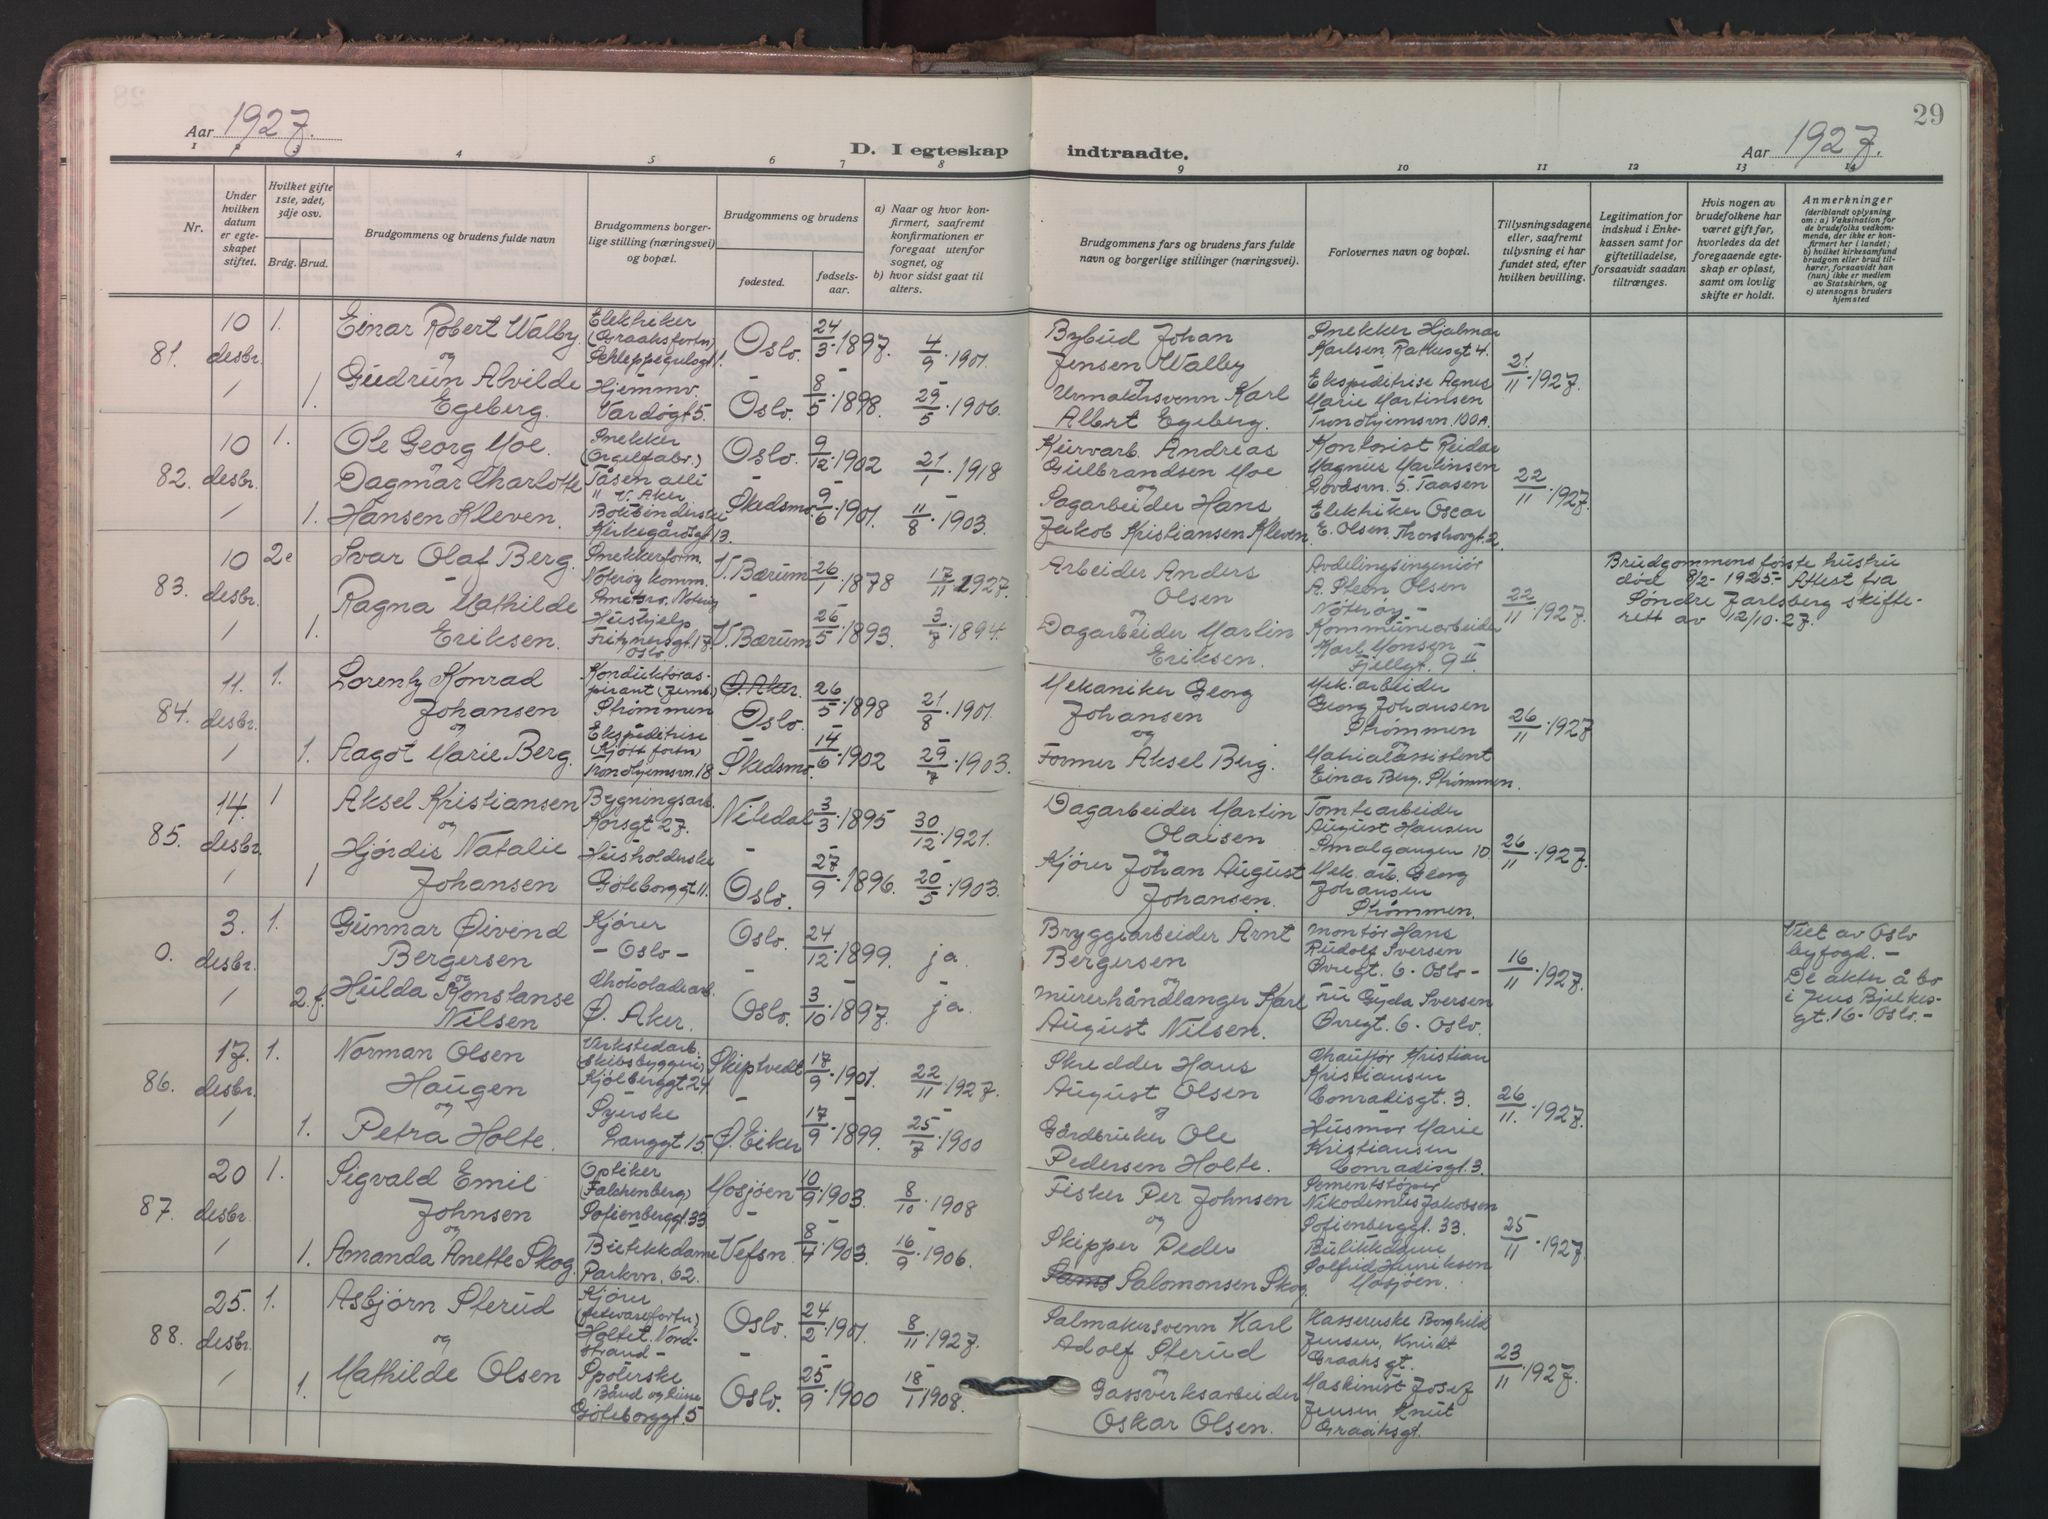 29
Aar 1927.
D. I egteskap indtraadte.
Aar 1927.
1 2 3 4 5 6 7 8 9 10 11 12 13 14
Nr.
Under hvilken datum er egteskapet stiftet.
Hvilket gifte 1ste, 2det, 3dje osv.
Brdg. Brud.
Brudgommens og brudens fulde navn
Brudgommens borgerlige stilling (næringsvei) og bopæl.
Brudgommens og brudens
fødested.
fødselsaar.
a) Naar og hvor konfirmert, saafremt konfirmationen er foregaat utenfor sognet, og
b) hvor sidst gaat til alters.
Brudgommens fars og brudens fars fulde navn og borgerlige stillinger (næringsvei).
Forlovernes navn og bopæl.
Tillysningsdagene eller, saafremt tillysning ei har fundet sted, efter hvilken bevilling.
Legitimation for indskud i Enkekassen samt for giftetilladelse, forsaavidt saadan tiltrænges.
Hvis nogen av brudefolkene har været gift før, hvorledes da det foregaaende egteskap er opløst, samt om lovlig skifte er holdt.
Anmerkninger
(deriblandt oplysning om: a) Vaksination for de brudefolks vedkommende, der ikke er konfirmert her i landet; b) hvilket kirkesamfund brudgom eller brud tilhører, forsaavidt han (hun) ikke er medlem av Statskirken, og c) utensogns bruders hjemsted
81. 10 desbr. 1.
Einar Robert Walby.
og
Elektriker
Schleppegrelsgt 1.
Oslo. 24/3 1897. 4/9 1901.
Bybud Johan
Jensen Walby
og
Snekker Hjalmar
Karlsen Rathusgt 4.
21/11 1927.
1.
Gudrun Alvilde
Egeberg.
Hjemmv.
Vardøgt 5.
Oslo. 8/5 1898. 29/5 1906.
Urmakersvenn Karl
Albert Egeberg.
Ekspeditrise Agnes
Marie Martinsen
Trondhjemsvn. 100A.
82. 10 desbr. 1.
Ole Georg Moe.
og
Snekker
(Orgelfabr.)
Tåsen alle
V. Aker
Oslo. 9/12 1902 21/1 1918
Kurvarb. Andreas
Gulbrandsen Moe
og
Kontorist Reidar
Magnus Martinsen
Lovdsvn. 5. Taasen
22/11 1927.
1.
Dagmar Charlotte
Hansen Kleven.
Kirkegårdsgt 13.
Skedsmo. 9/6 1901. 11/8 1903.
Sagarbeider Hans
Jakob Kristiansen Kleven.
Elektriker Oscar
E. Olsen, Thorshovgt. 2.
83. 10 desbr. 2e
Ivar Olaf Berg.
Snekkerform.
Nøterøy komm.
V. Bærum 26/1 1878 17/11 1927.
Arbeider Anders
Olsen
og
Avdelingsingeniør
A. Steen Olsen
Nøterøy
22/11 1927.
Brudgommens første hustru
død 8/2 1925 Attest fra
Søndre Jarlsberg skifte-
rett av 12/10 27.
1.
Ragna Mathilde
Eriksen.
Hushjelp
Fritznersgt. 17.
Oslo
V. Bærum 25/5 1893. 3/7 1894.
Dagarbeider Martin
Eriksen.
Kommunearbeider
Karl Monsen
Fjellgt. 9 II
84. 11. desbr. 1.
Lorentz Konrad
Johansen
og
Konduktøras-
pirant (Jernb.)
Strømmen
Ø. Aker.
Oslo. 26/5 1898 21/8 1901.
Mekaniker Georg
Johansen
og
Mek. arbeider
Georg Johansen
Strømmen
26/11 1927
1.
Aagot Marie Berg.
Ekspeditrise
(Kjøttfortn)
Trondhjemsvn. 18
Skedsmo. 14/6 1902 29/7 1903.
Former Aksel Berg.
Matrialassistent
Einar Berg. Strømmen.
85. 14. desbr. 1
Aksel Kristiansen
og
Bygningsarb.
Korsgt 27.
Nitedal 3/3 1895 30/12 1921.
Dagarbeider Martin
Olaisen
og
Tomtearbeider
August Hansen
Smalgangen 10.
26/11 1927.
1
Hjørdis Natalie
Johansen
Husholderske
Gøteborggt 11.
Oslo. 27/9 1896. 20/5 1903.
Kjører Johan August
Johansen.
Mek. arb. Georg
Johansen
Strømmen.
0. 3. desbr. 1.
Gunnar Øivend
Bergersen
og
Kjører
- Oslo -
Oslo. 24/12 1899. ja.
Bryggearbeider Arnt
Bergersen
og
Montør Hans
Rudolf Iversen
Øvregt. 6 - Oslo -
16/11 1927.
Viet av Oslo
byfogd. -
De akter å bo
i Jens Bjelkes-
gt. 16 - Oslo. -
2. f.
Hulda Konstanse
Nilsen
Chokoladearb.
Ø. Aker.
Oslo. 3/10 1897. ja.
Murerhåndlanger Karl
August Nilsen.
Fru Gyda Iversen
Øvregt. 6 - Oslo.
86. 17. desbr. 1.
Norman Olsen
Haugen
og
Verkstedarb.
(Skibsbyggeri)
Kjølberggt 24
Skiptvedt 17/9 1901. 22/11 1927.
Skredder Hans
August Olsen
og
Chauffør Kristian
Kristiansen
Conradisgt. 3.
26/11 1927.
1.
Petra Holte.
Syerske
Langgt. 15.
Ø. Eiker 17/9 1899. 25/7 1900
Gårdbruker Ole
Pedersen Holte.
Husmor Marie
Kristiansen
Conradisgt. 3.
87. 20 desbr. 1.
Sigvald Emil
Johnsen
og
Optiker
(Falchenberg)
Sofienberggt. 33
Mosjøen 10/9 1903. 8/10 1908
Fisker Per Johnsen
og
Sementstøper
Nikodemus Jakobsen
Sofienberggt. 33.
25/11 1927.
1.
Amanda Anette Skog.
Butikkdame
Parkvn. 62.
Vefsn. 8/4 1903. 16/9 1906.
Skipper Peder
Salomonsen Skog.
Butikkdame
Solfrid Henriksen
Mosjøen.
88. 25. desbr. 1.
Asbjørn Sterud
og
Kjører
(fetvareforrtn)
Holtet. Nord-
strand -
Oslo. 24/2 1901. 8/11 1927.
Salmakersvenn Karl
Adolf Sterud
og
Kassererske Borghild
Jensen, Knudt
Graahsgt.
23/11 1927.
1.
Mathilde Olsen
Spolerske
Bånd og lisse
Gøteborggt. 5
Oslo. 25/9 1900 18/1 1908.
Gassverksarbeider
Oskar Olsen.
Maskinist Josef
Jensen Knut
Graahsgt.